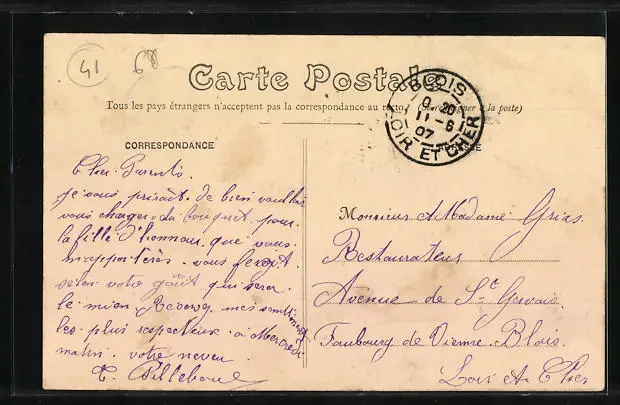 41
Carte Postale
BLOIS
LOIR ET CHER
11-6
07
Tous les pays étrangers n'acceptent pas la correspondance au recto (Se renseigner à la poste)
CORRESPONDANCE
Cher Parents.
je vous priront de bien vouloir
vous charger du bouquet pour
la fille d'honneur que vous
m'apporterès. vous ferez
selon votre goût qui sera
le mien Recevez mes sentiments
les plus respectueux a Mercredi
matin. votre neveu
Monsieur et Madame Grias
Restaurateur
Avenue de St Gervais.
Faubourg de Vienne Blois.
Loir et Cher